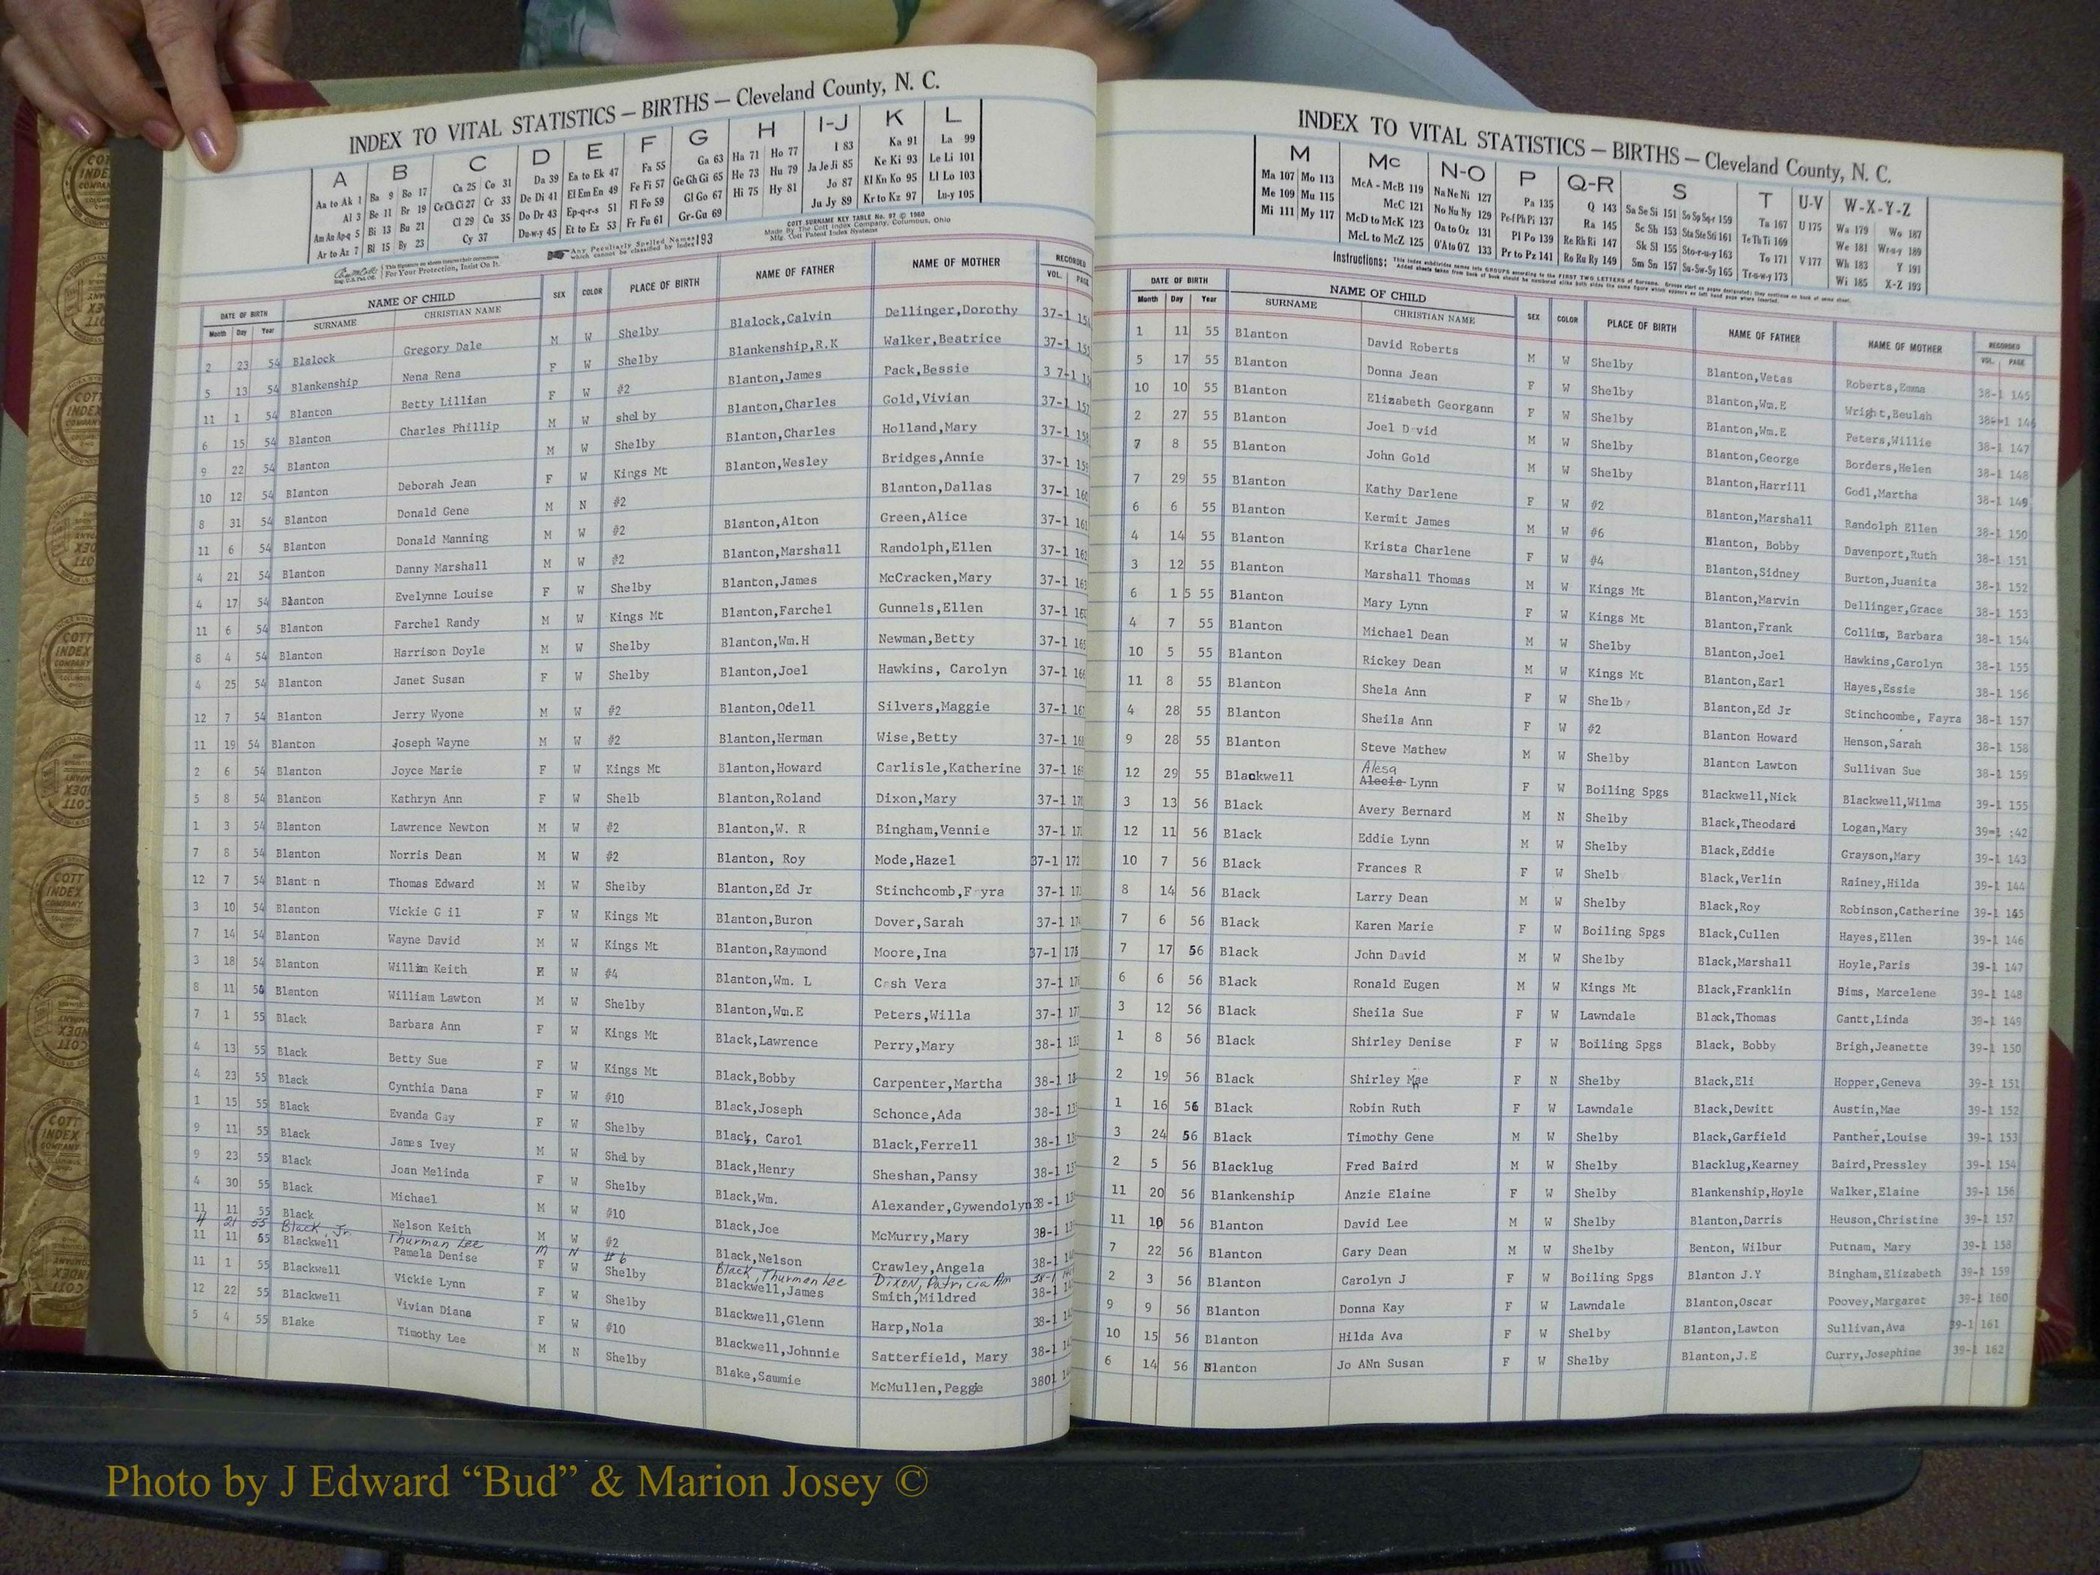 INDEX TO VITAL STATISTICS — BIRTHS — Cleveland County, N. C.
A B C D E F G H I-J K L
Aa to Ak 1 Ba 9 Bo 17 Ca 25 Co 31 Da 39 Ea to Ek 47 Fa 55 Ga 63 Ha 71 Ho 77 I 83 Ka 91 La 99
Al 3 Be 11 Br 19 Ce Ch Ci 27 Cr 33 De Di 41 El Em En 49 Fe Fi 57 Ge Gh Gi 65 He 73 Hu 79 Ja Je Ji 85 Ke Ki 93 Le Li 101
Am An Ap-q 5 Bi 13 Bu 21 Cl 29 Cu 35 Do Dr 43 Ep-q-r-s 51 Fl Fo 59 Gl Go 67 Hi 75 Hy 81 Jo 87 Kl Kn Ko 95 Ll Lo 103
Ar to Az 7 Bl 15 By 23 Cy 37 Du-w-y 45 Et to Ez 53 Fr Fu 61 Gr-Gu 69 Ju Jy 89 Kr to Kz 97 Lu-y 105
For Your Protection, Insist On It.
Any Peculiarly Spelled Names which cannot be classified by Index 193
COTT SURNAME KEY TABLE No. 97 © 1960
Made By The Cott Index Company, Columbus, Ohio
DATE OF BIRTH NAME OF CHILD SEX COLOR PLACE OF BIRTH NAME OF FATHER NAME OF MOTHER RECORDED
Month Day Year SURNAME CHRISTIAN NAME VOL. PAGE
2 23 54 Blalock Gregory Dale M W Shelby Blalock,Calvin Dellinger,Dorothy 37-1
5 13 54 Blankenship Nena Rena F W Shelby Blankenship,R.K Walker,Beatrice 37-1
11 1 54 Blanton Betty Lillian F W #2 Blanton,James Pack,Bessie 3 7-1
6 15 54 Blanton Charles Phillip M W shelby Blanton,Charles Gold,Vivian 37-1 157
9 22 54 Blanton M W Shelby Blanton,Charles Holland,Mary 37-1 158
10 12 54 Blanton Deborah Jean F W Kings Mt Blanton,Wesley Bridges,Annie 37-1 159
8 31 54 Blanton Donald Gene M N #2 Blanton,Dallas 37-1 160
11 6 54 Blanton Donald Manning M W #2 Blanton,Alton Green,Alice 37-1 161
4 21 54 Blanton Danny Marshall M W #2 Blanton,Marshall Randolph,Ellen 37-1 162
4 17 54 Blanton Evelynne Louise F W Shelby Blanton,James McCracken,Mary 37-1 163
11 6 54 Blanton Farchel Randy M W Kings Mt Blanton,Farchel Gunnels,Ellen 37-1
8 4 54 Blanton Harrison Doyle M W Shelby Blanton,Wm.H Newman,Betty 37-1 165
4 25 54 Blanton Janet Susan F W Shelby Blanton,Joel Hawkins, Carolyn 37-1 166
12 7 54 Blanton Jerry Wyone M W #2 Blanton,Odell Silvers,Maggie 37-1 167
11 19 54 Blanton Joseph Wayne M W #2 Blanton,Herman Wise,Betty 37-1 168
2 6 54 Blanton Joyce Marie F W Kings Mt Blanton,Howard Carlisle,Katherine 37-1 169
5 8 54 Blanton Kathryn Ann F W Shelb Blanton,Roland Dixon,Mary 37-1 170
1 3 54 Blanton Lawrence Newton M W #2 Blanton,W. R Bingham,Vennie 37-1 171
7 8 54 Blanton Norris Dean M W #2 Blanton, Roy Mode,Hazel 37-1 172
12 7 54 Blant n Thomas Edward M W Shelby Blanton,Ed Jr Stinchcomb,F yra 37-1 173
3 10 54 Blanton Vickie G il F W Kings Mt Blanton,Buron Dover,Sarah 37-1 174
7 14 54 Blanton Wayne David M W Kings Mt Blanton,Raymond Moore,Ina 37-1 175
3 18 54 Blanton William Keith W #4 Blanton,Wm. L Cash Vera 37-1 176
8 11 54 Blanton William Lawton M W Shelby Blanton,Wm.E Peters,Willa 37-1 177
7 1 55 Black Barbara Ann F W Kings Mt Black,Lawrence Perry,Mary 38-1
4 13 55 Black Betty Sue F W Kings Mt Black,Bobby Carpenter,Martha 38-1
4 23 55 Black Cynthia Dana F W #10 Black,Joseph Schonce,Ada 38-1
1 15 55 Black Evanda Gay F W Shelby Black, Carol Black,Ferrell 38-1
9 11 55 Black James Ivey M W Shelby Black,Henry Sheshan,Pansy 38-1
9 23 55 Black Joan Melinda F W Shelby Black,Wm. Alexander,Gywendolyn 38-1
4 30 55 Black Michael M W #10 Black,Joe McMurry,Mary 38-1
11 11 55 Black Nelson Keith M W #2 Black,Nelson Crawley,Angela 38-1
4 21 55 Black, Jr. Thurman Lee M N #6 Black, Thurman Lee Dixon, Patricia Ann 38-1
11 11 55 Blackwell Pamela Denise F W Shelby Blackwell,James Smith,Mildred 38-1
11 1 55 Blackwell Vickie Lynn F W Shelby Blackwell,Glenn Harp,Nola 38-1
12 22 55 Blackwell Vivian Diana F W #10 Blackwell,Johnnie Satterfield, Mary 38-1
5 4 55 Blake Timothy Lee M N Shelby Blake,Sammie McMullen,Peggie 3801
INDEX TO VITAL STATISTICS — BIRTHS — Cleveland County, N. C.
M Mc N-O P Q-R S T U-V W-X-Y-Z
Ma 107 Mo 113 McA - McB 119 Na Ne Ni 127 Pa 135 Q 143 Sa Se Si 151 So Sp Sq-r 159 Ta 167 U 175 Wa 179 Wo 187
Me 109 Mu 115 McC 121 No Nu Ny 129 Pe-f Ph Pi 137 Ra 145 Sc Sh 153 Sta Ste Sti 161 Te Th Ti 169 We 181 Wr-u-y 189
Mi 111 My 117 McD to McK 123 Oa to Oz 131 Pl Po 139 Re Rh Ri 147 Sk Sl 155 Sto-r-u-y 163 To 171 V 177 Wh 183 Y 191
McL to McZ 125 O'A to O'Z 133 Pr to Pz 141 Ro Ru Ry 149 Sm Sn 157 Su-Sw-Sy 165 Tr-u-w-y 173 Wi 185 X-Z 193
Instructions: This index subdivides names into GROUPS according to the FIRST TWO LETTERS of Surname.
DATE OF BIRTH NAME OF CHILD SEX COLOR PLACE OF BIRTH NAME OF FATHER NAME OF MOTHER RECORDED
Month Day Year SURNAME CHRISTIAN NAME VOL. PAGE
1 11 55 Blanton David Roberts M W Shelby Blanton,Vetas Roberts,Emma 38-1 145
5 17 55 Blanton Donna Jean F W Shelby Blanton,Wm.E Wright,Beulah 38-1 146
10 10 55 Blanton Elizabeth Georgann F W Shelby Blanton,Wm.E Peters,Willie 38-1 147
2 27 55 Blanton Joel D vid M W Shelby Blanton,George Borders,Helen 38-1 148
7 8 55 Blanton John Gold M W Shelby Blanton,Harrill Godl,Martha 38-1 149
7 29 55 Blanton Kathy Darlene F W #2 Blanton,Marshall Randolph Ellen 38-1 150
6 6 55 Blanton Kermit James M W #6 Blanton, Bobby Davenport,Ruth 38-1 151
4 14 55 Blanton Krista Charlene F W #4 Blanton,Sidney Burton,Juanita 38-1 152
3 12 55 Blanton Marshall Thomas M W Kings Mt Blanton,Marvin Dellinger,Grace 38-1 153
6 1 5 55 Blanton Mary Lynn F W Kings Mt Blanton,Frank Collins, Barbara 38-1 154
4 7 55 Blanton Michael Dean M W Shelby Blanton,Joel Hawkins,Carolyn 38-1 155
10 5 55 Blanton Rickey Dean M W Kings Mt Blanton,Earl Hayes,Essie 38-1 156
11 8 55 Blanton Shela Ann F W Shelby Blanton,Ed Jr Stinchcombe, Fayra 38-1 157
4 28 55 Blanton Sheila Ann F W #2 Blanton Howard Henson,Sarah 38-1 158
9 28 55 Blanton Steve Mathew M W Shelby Blanton Lawton Sullivan Sue 38-1 159
12 29 55 Blackwell Alesa Alecia Lynn F W Boiling Spgs Blackwell,Nick Blackwell,Wilma 39-1 155
3 13 56 Black Avery Bernard M N Shelby Black,Theodard Logan,Mary 39-1 :42
12 11 56 Black Eddie Lynn M W Shelby Black,Eddie Grayson,Mary 39-1 143
10 7 56 Black Frances R F W Shelb Black,Verlin Rainey,Hilda 39-1 144
8 14 56 Black Larry Dean M W Shelby Black,Roy Robinson,Catherine 39-1 145
7 6 56 Black Karen Marie F W Boiling Spgs Black,Cullen Hayes,Ellen 39-1 146
7 17 56 Black John David M W Shelby Black,Marshall Hoyle,Paris 39-1 147
6 6 56 Black Ronald Eugen M W Kings Mt Black,Franklin Bims, Marcelene 39-1 148
3 12 56 Black Sheila Sue F W Lawndale Black,Thomas Gantt,Linda 39-1 149
1 8 56 Black Shirley Denise F W Boiling Spgs Black, Bobby Brigh,Jeanette 39-1 150
2 19 56 Black Shirley Mae F N Shelby Black,Eli Hopper,Geneva 39-1 151
1 16 56 Black Robin Ruth F W Lawndale Black,Dewitt Austin,Mae 39-1 152
3 24 56 Black Timothy Gene M W Shelby Black,Garfield Panther,Louise 39-1 153
2 5 56 Blacklug Fred Baird M W Shelby Blacklug,Kearney Baird,Pressley 39-1 154
11 20 56 Blankenship Anzie Elaine F W Shelby Blankenship,Hoyle Walker,Elaine 39-1 156
11 10 56 Blanton David Lee M W Shelby Blanton,Darris Heuson,Christine 39-1 157
7 22 56 Blanton Gary Dean M W Shelby Benton, Wilbur Putnam, Mary 39-1 158
2 3 56 Blanton Carolyn J F W Boiling Spgs Blanton J.Y Bingham,Elizabeth 39-1 159
9 9 56 Blanton Donna Kay F W Lawndale Blanton,Oscar Poovey,Margaret 39-1 160
10 15 56 Blanton Hilda Ava F W Shelby Blanton,Lawton Sullivan,Ava 39-1 161
6 14 56 Blanton Jo ANn Susan F W Shelby Blanton,J.E Curry,Josephine 39-1 162
Photo by J Edward “Bud” & Marion Josey ©